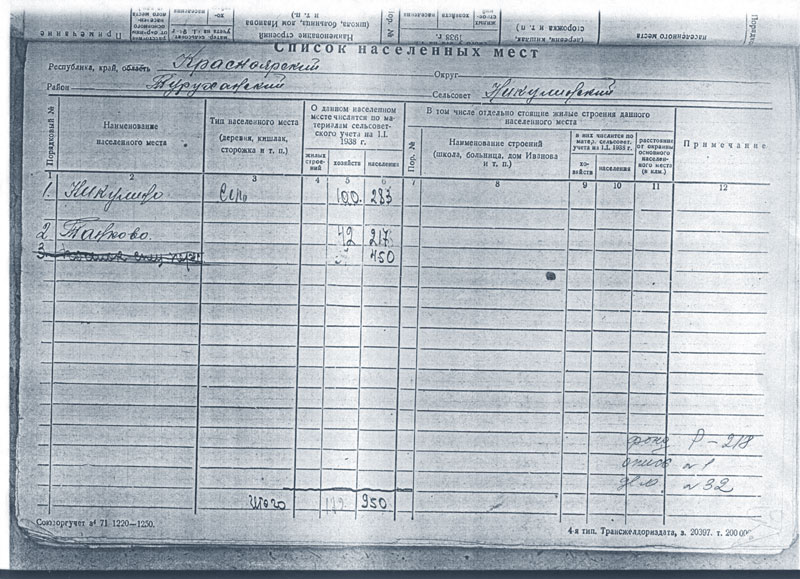 Список населенных мест
Республика, край, область Красноярский Округ
Район Туруханский Сельсовет Никулинский
Порядковый №
Наименование населенного места
Тип населенного места (деревня, кишлак, сторожка и т. п.)
О данном населенном месте числятся по материалам сельсоветского учета на 1.I. 1938 г.
жилых строений
хозяйств
населения
Пор. №
В том числе отдельно стоящие жилые строения данного населенного места
Наименование строений (школа, больница, дом Иванова и т. п.)
в них числится по матер. сельсовет. учета на 1.I. 1938 г.
хозяйств
населения
расстояние от окраины основного населенного места (в клм.)
Примечание
1 2 3 4 5 6 7 8 9 10 11 12
1. Никулино Село 100. 283
2 Танково. 42 217
3. 450
фонд Р-218
опись №1
№32
Итого 950
Союзоргучет 71 1220—1250.
4-я тип. Трансжелдориздата, з. 20397. т. 200